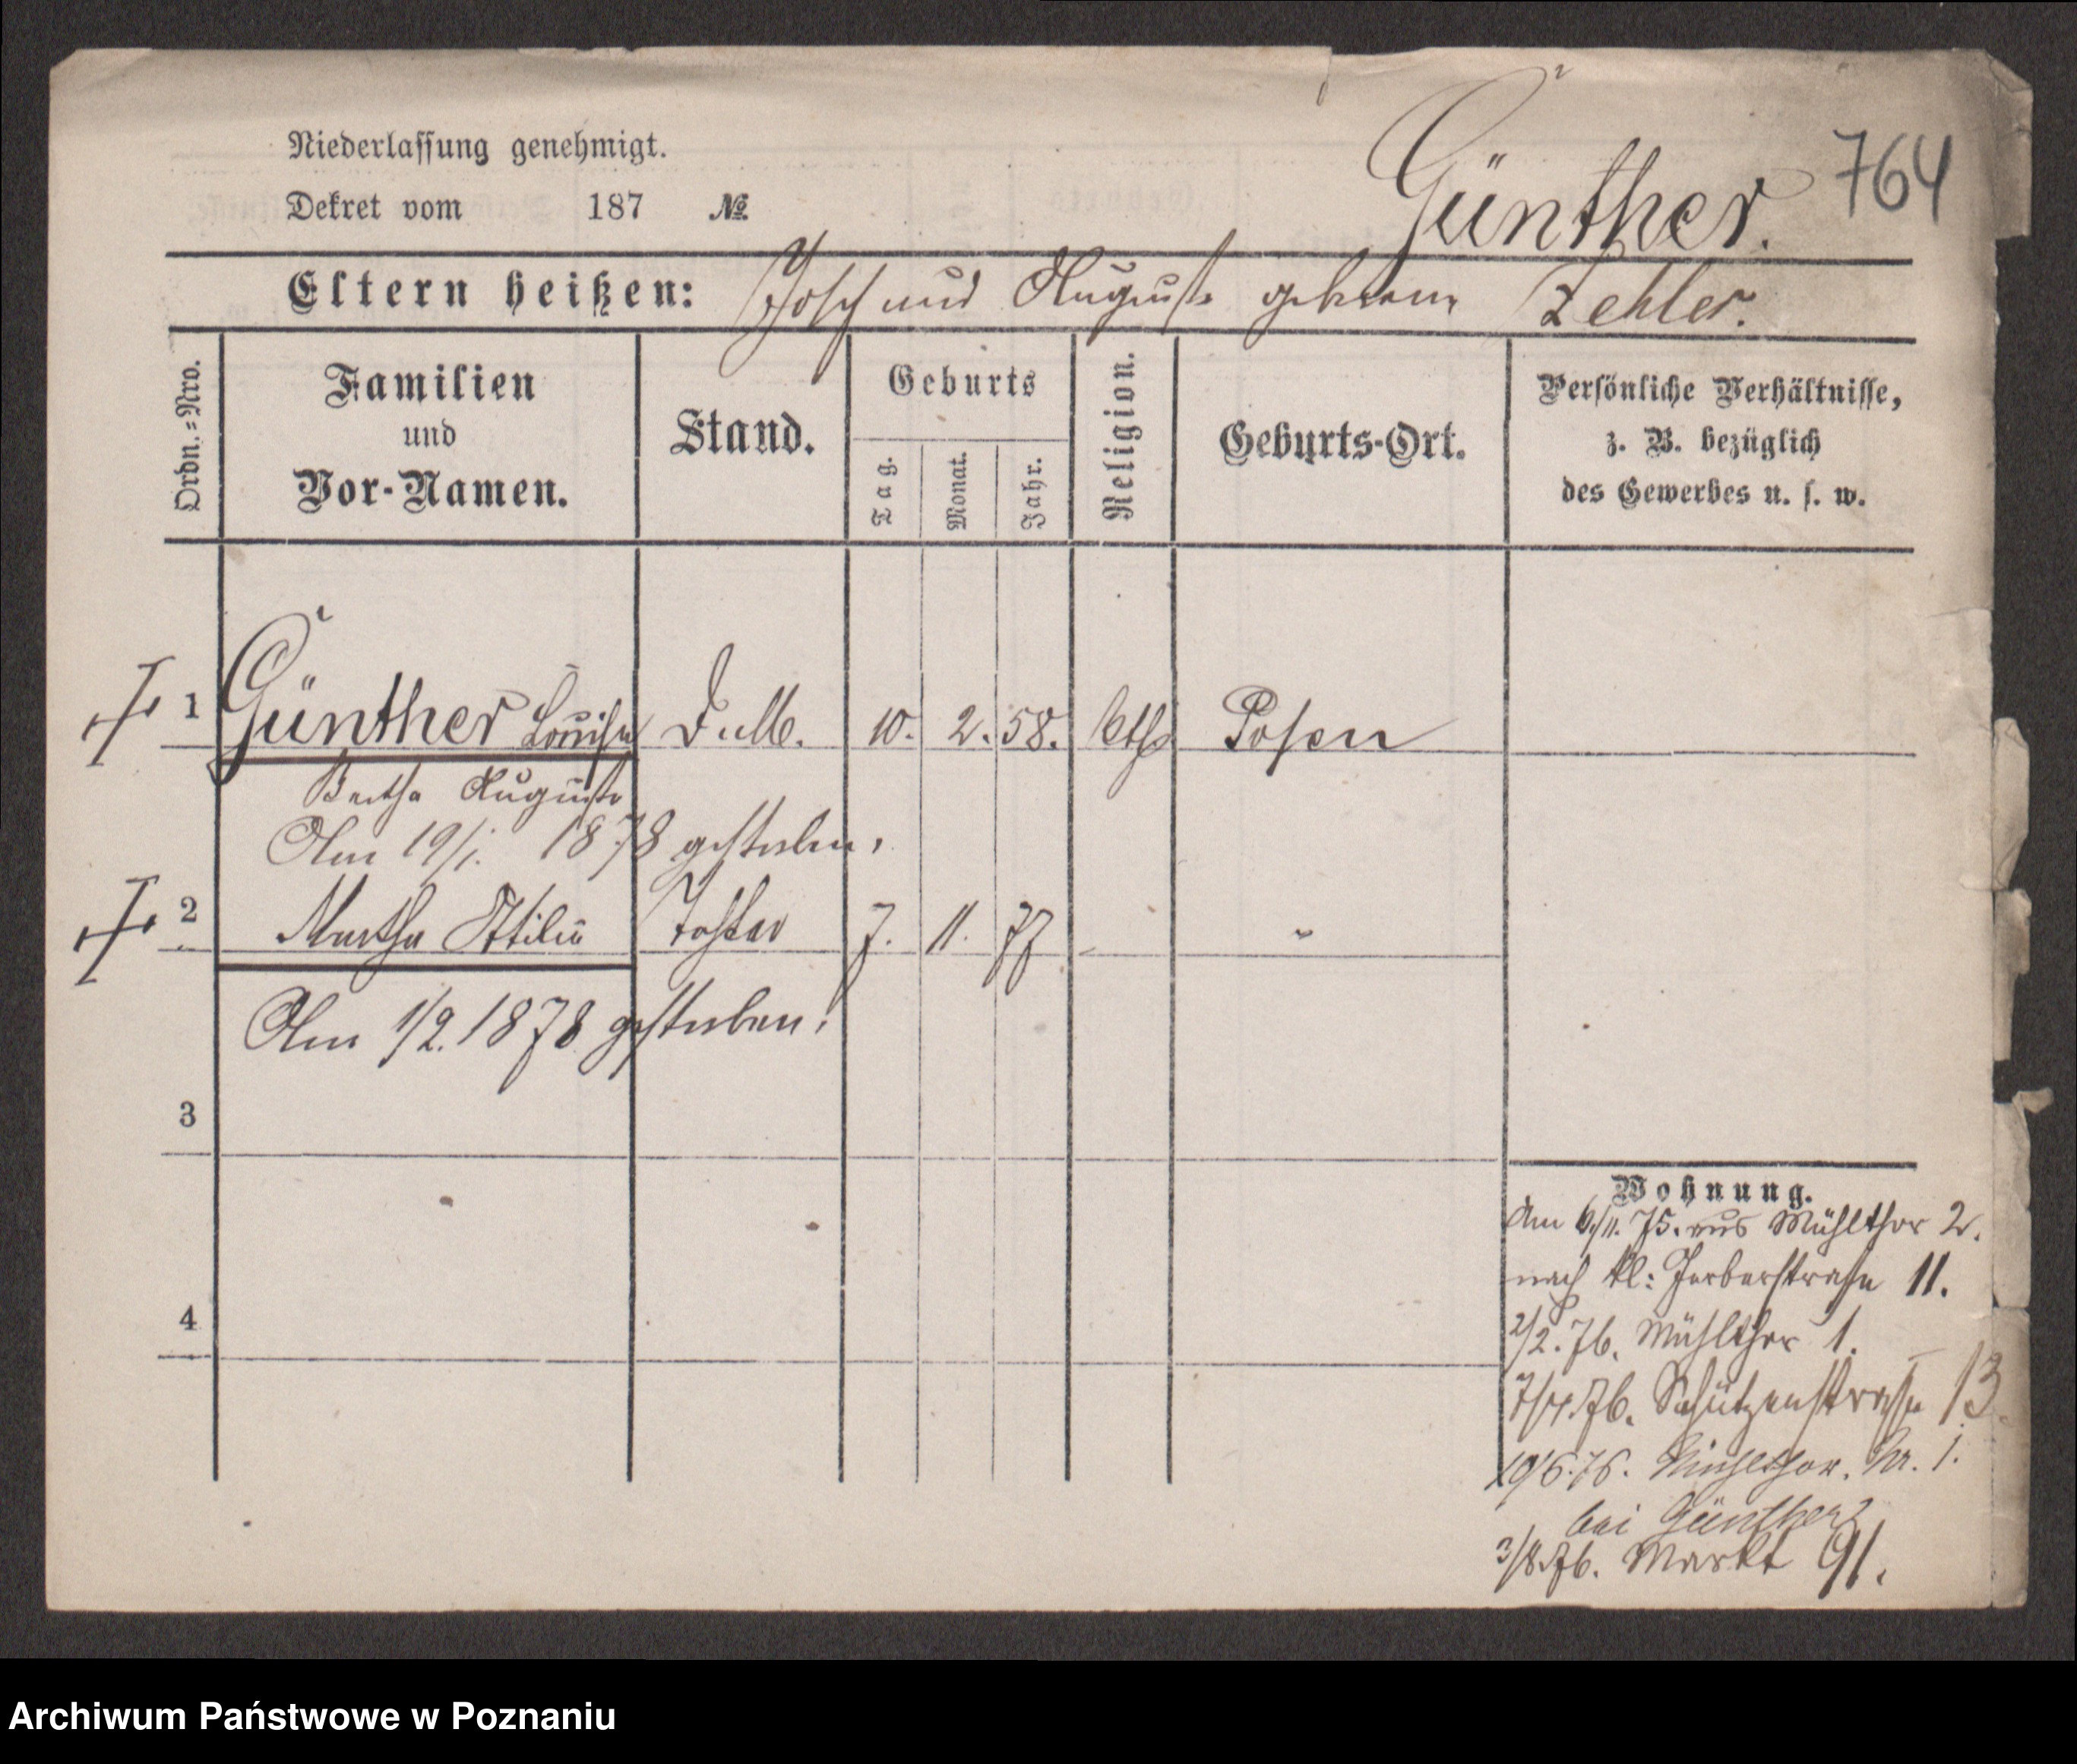 Niederlassung genehmigt.
Dekret vom 187 №
Günther. 764
Eltern heißen: Josef und Auguste geborene Zehler.
Ordn.=Nro.
Familien
und
Vor-Namen.
Stand.
Geburts
Tag.
Monat.
Jahr.
Religion.
Geburts-Ort.
Persönliche Verhältnisse,
z. B. bezüglich
des Gewerbes u. s. w.
1 Günther Louise 10. 2. 58. kth Posen
Bertha Auguste
Am 19/1. 1878 gestorben.
2 Martha Ottilie Tochter 7. 11. 77 - "
Am 1/2. 1878 gestorben.
3
4
Wohnung.
Am 6/11. 75. aus Mühlthor 2.
nach kl: Gerberstraße 11.
2/2. 76. Mühlthor 1.
7/4. 76. Schützenstraße 13.
19/6. 76. Mühlthor. Nr. 1.
bei Günther
3/8. 76. Markt 91.
Archiwum Państwowe w Poznaniu